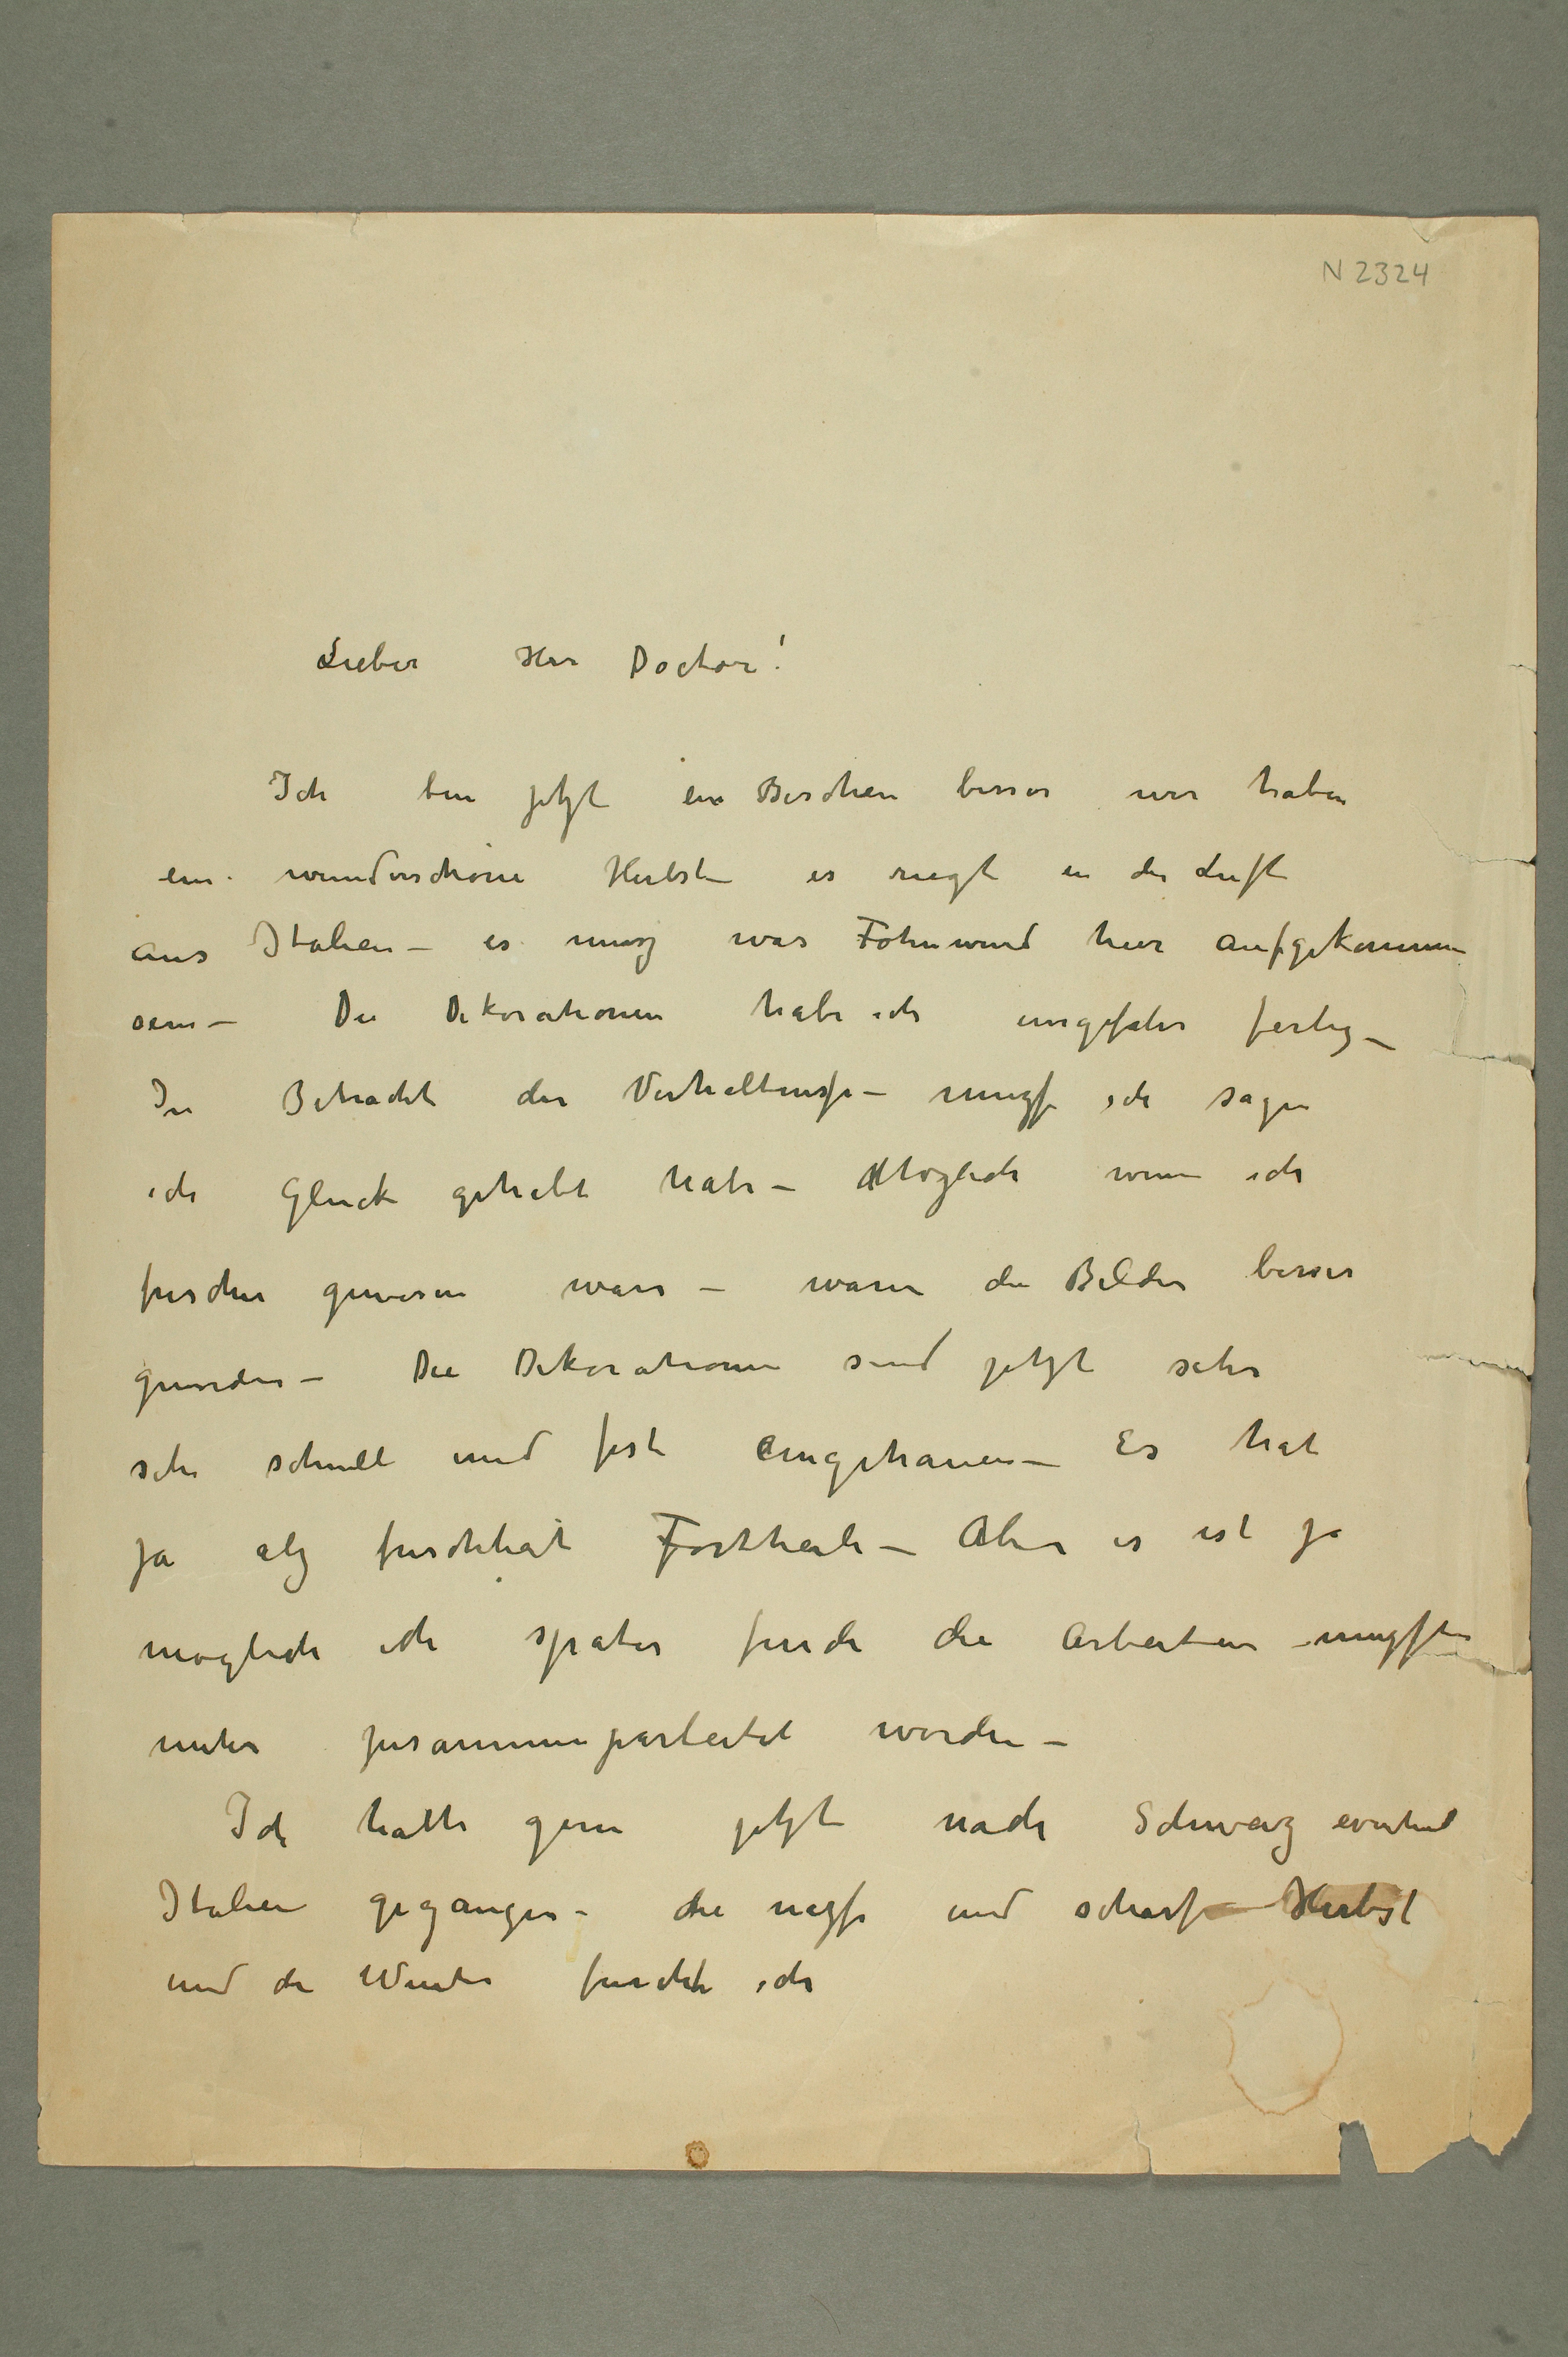 N 2324
Lieber Herr Doctor!
Ich bin jetzt ein Bischen besser wir haben
ein wunderschöne Herbst – es riegt in der Luft
aus Italien – es musz was Föhnwind hier aufgekommen
sein – Die Dekorationen habe ich ungefahr fertig –
In Betracht der Verhaltnisze – musz ich sagen
ich Glück gehabt habe – Möglich wenn ich
frischer gewesen wäre – waren die Bilder besser
geworden – Die Dekorationen sind jetzt sehr
sehr schnell und fest eingehauen – Es hat
ja alz frischheit Fortheile – Aber es ist ja
möglich ich später finde die Arbeiten muszten
mehr zusammengearbeitet worden –
Ich hatte gern jetzt nach Schweiz eventuel
Italien gegangen – die nasze und scharfe Herbst
und der Winter furchte ich